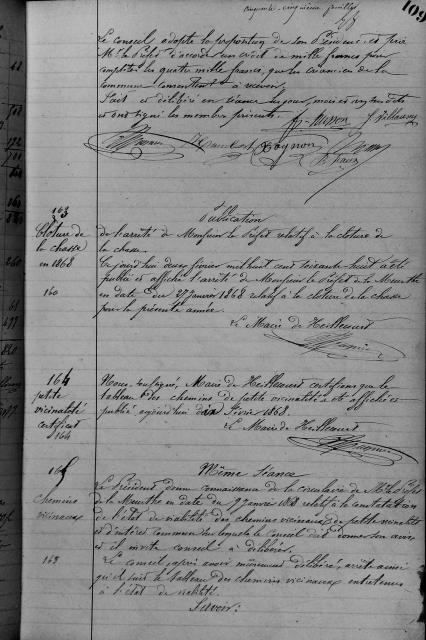 Cinquante-cinquième feuillet
109
Le conseil adopte la proposition de son Président et prie
M. le Préfet d'accorder un crédit de mille francs pour
compléter les quatre mille francs, que les créanciers de la
commune consentent à recevoir.
Fait et délibéré en séance les jour, mois et an
et ont signé les membres présents.
163
Publication
Clôture de
la chasse
en 1868
160
de l'arrêté de Monsieur le Préfet relatif à la clôture de
la chasse.
Ce jourd'hui deux février mil huit cent soixante huit a été
publié et affiché l'arrêté de Monsieur le Préfet de la Meurthe
en date du 27 janvier 1868 relatif à la clôture de la chasse
pour la présente année.
Le Maire de Heillecourt
164
petite
vicinalité
certificat
164
Nous soussigné, Maire de Heillecourt certifions que le
tableau des chemins de petite vicinalité a été affiché et
publié aujourd'hui dix février 1868.
Le Maire de Heillecourt
165
Même séance
Chemins
vicinaux
Le Président donne connaissance de la circulaire de M. le Préfet
de la Meurthe en date du janvier 1868 relatif à la constatation
de l'état de viabilité des chemins vicinaux de petite vicinalité
et d'intérêt commun sur lesquels le Conseil doit donner son avis
et il invite conseil à délibérer.
163
Le Conseil après avoir mûrement délibéré, arrête ainsi
qu'il suit le tableau des chemins vicinaux entretenus
à l'état de viabilité
Savoir: